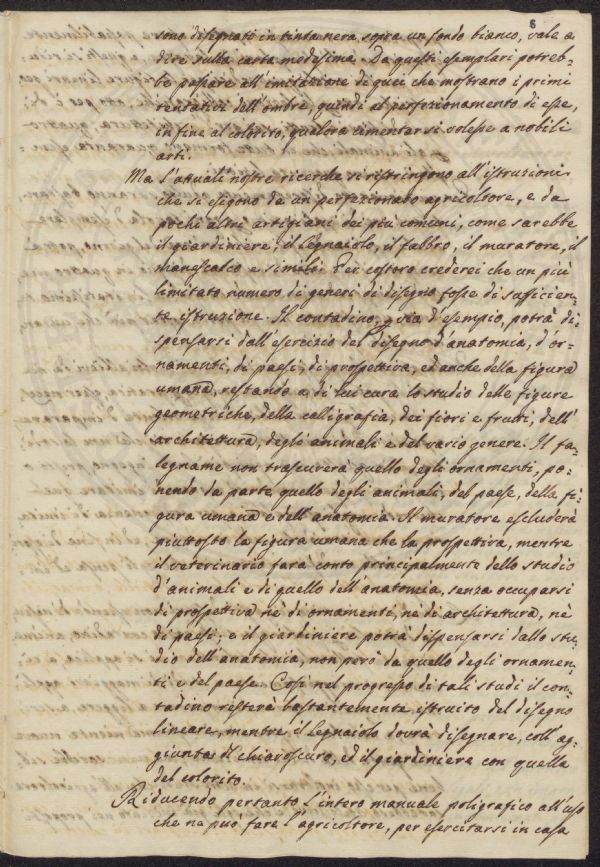 6
sono disegnati in tinta nera sopra un fondo bianco, vale a
dire sulla carta medesima. Da questi esemplari potreb-
be passare all'imitazione di quei che mostrano i primi
tentativi dell'ombre, quindi al perfezionamento di esse,
in fine al colorito, qualora cimentar si volesse a nobili
arti.
Ma l'attuali nostre ricerche si ristringono all'istruzioni
che si esigono da un perfezionato agricoltore, e da
pochi altri artigiani dei più comuni, come sarebbe
il giardiniere, il legnaiolo, il fabbro, il muratore, il
manescalco e simili. Per costoro crederei che un più
limitato numero di generi di disegno fosse di sufficien-
te istruzione. Il contadino, p. via d'esempio, potrà di-
spensarsi dall'esercizio del disegno d'anatomia, d'or-
namenti, di paesi, di prospettiva, ed anche della figura
umana, restando a di lui cura lo studio delle figure
geometriche, della calligrafia, dei fiori e frutti, dell'
architettura, degli animali e del vario genere. Il fa-
legname non trascurerà quello degli ornamenti, po-
nendo da parte quello degli animali, del paese, della fi-
gura umana e dell'anatomia. Il muratore escluderà
piuttosto la figura umana che la prospettiva, mentre
il veterinario farà conto principalmente dello studio
d'animali e di quello dell'anatomia, senza occuparsi
di prospettiva nè di ornamenti, nè di architettura, nè
di paesi; e il giardiniere potrà dispensarsi dallo stu-
dio dell'anatomia, non però da quello degli ornamen-
ti e del paese. Così nel progresso di tali studi il con-
tadino resterà bastantemente istruito del disegno
lineare, mentre il legnaiolo dovrà disegnare, coll'ag-
giunta di chiaroscuro, ed il giardiniere con quella
del colorito.
Riducendo pertanto l'intero manuale poligrafico all'uso
che ne può fare l'agricoltore, per esercitarsi in casa